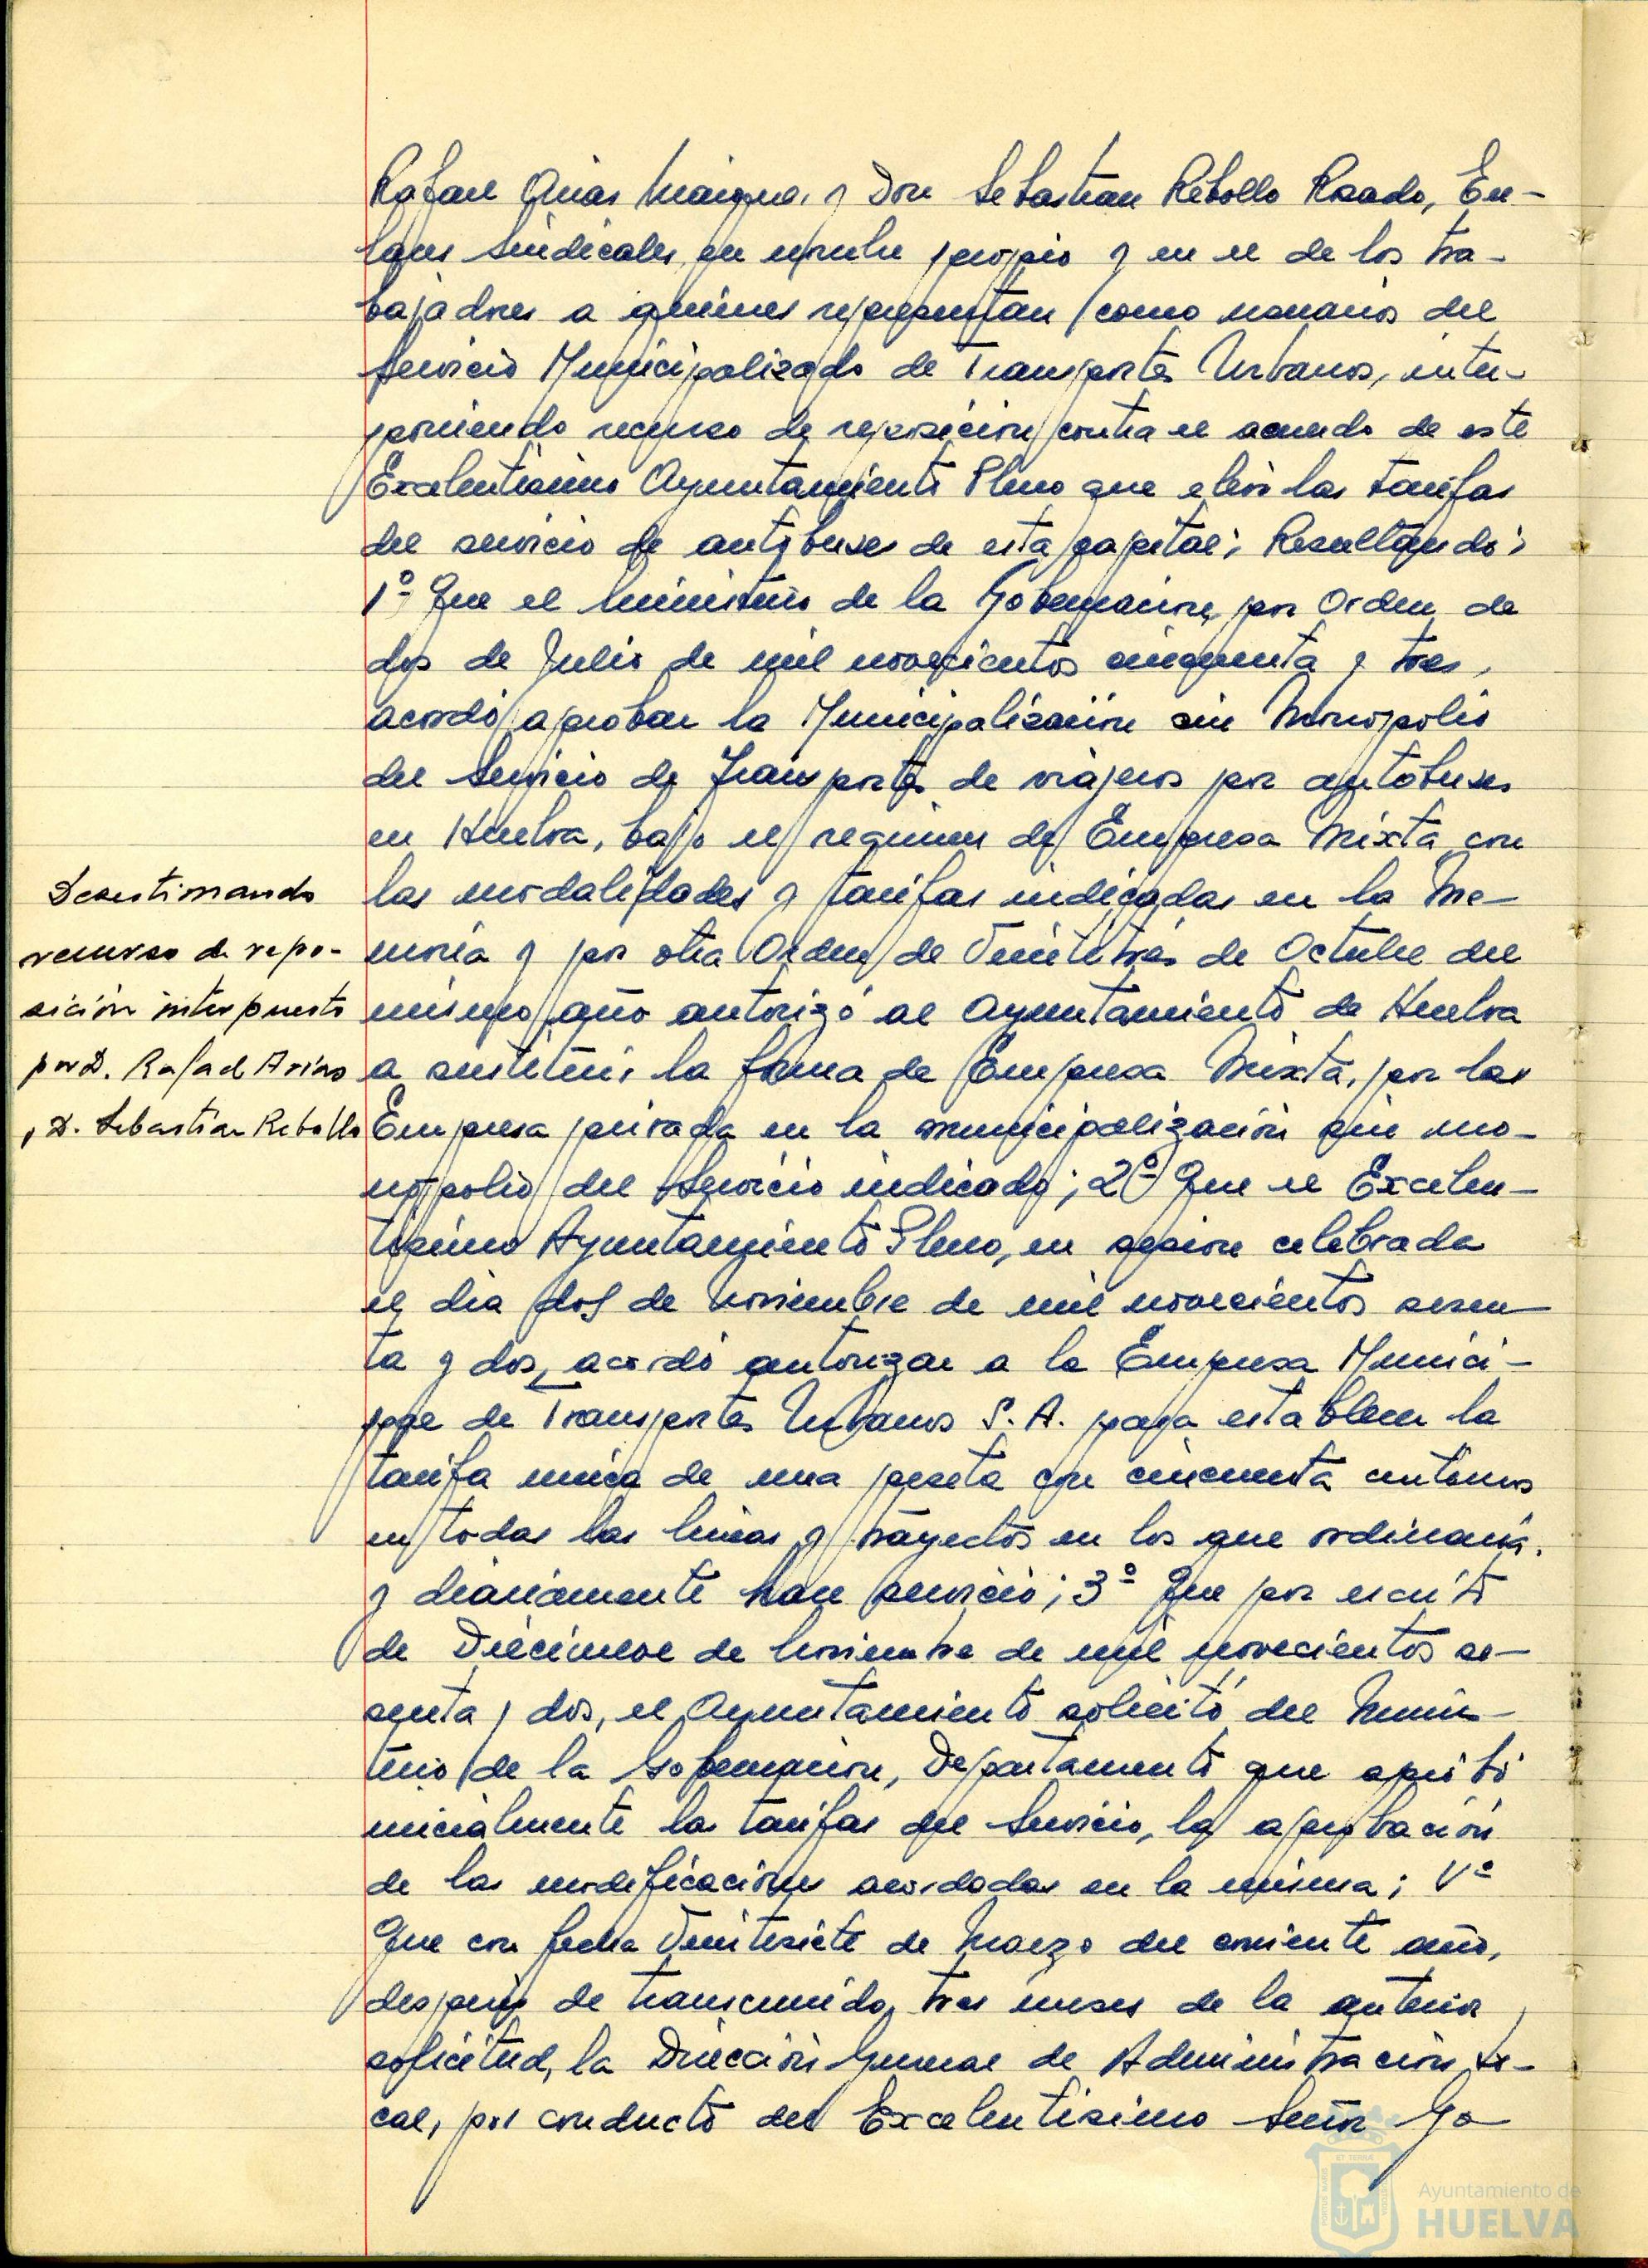 Rafael Arias y Don Sebastian Rebollo Rosado, En-
laces Sindicales, en nombre propio y en el de los tra-
bajadores a quienes representan como usuarios del
Servicio Municipalizado de Transportes Urbanos, inter-
poniendo recurso de reposicion contra el acuerdo de este
Excelentisimo Ayuntamiento Pleno que elevó las tarifas
del servicio de autobuses de esta capital; Resultando:
1º Que el Ministerio de la Gobernacion, por Orden de
dos de Julio de mil novecientos cincuenta y tres,
acordó aprobar la Municipalización sin Monopolio
del Servicio de Transportes de viajeros por autobuses
en Huelva, bajo el regimen de Empresa Mixta con
Desestimando
recurso de repo-
sición interpuesto
por D. Rafael Arias
y D. Sebastian Rebollo
las modalidades y tarifas indicadas en la Me-
moria y por otra Orden de Veintitrés de Octubre del
mismo año autorizó al Ayuntamiento de Huelva
a sustituir la forma de Empresa Mixta, por las
Empresa privada en la municipalización sin mo-
nopolio del Servicio indicado; 2º Que el Excelen-
tisimo Ayuntamiento Pleno, en sesion celebrada
el dia dos de Noviembre de mil novecientos sesen-
ta y dos, acordó autorizar a la Empresa Munici-
pal de Transportes Urbanos S.A. para establecer la
tarifa unica de una peseta con cincuenta centimos
en todas las lineas y trayectos en los que ordinaria
y diariamente hace servicio; 3º Que por escrito
de Diecinueve de Noviembre de mil novecientos se-
senta y dos, el Ayuntamiento solicitó del Minis-
terio de la Gobernacion, Departamento que aprobó
inicialmente las tarifas del Servicio, la aprobación
de las modificaciones acordadas en la misma; Vº
Que con fecha Veintisiete de Marzo del corriente año,
despues de transcurrido, tres meses de la anterior
solicitud, la Dirección General de Administración Lo-
cal, por conducto del Excelentisimo Señor Go-
Ayuntamiento de
HUELVA